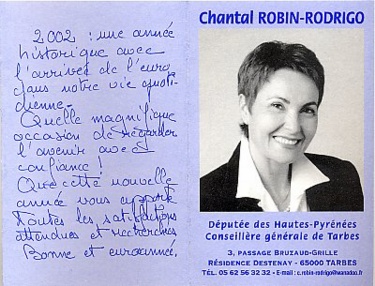 2002 : une année
historique avec
l'arrivée de l'euro
dans notre vie quoti-
dienne.
Quelle magnifique
occasion de regarder
l'avenir avec
confiance !
Que cette nouvelle
année vous apporte
toutes les satisfactions
attendues et recherchées
Bonne et euroannée.
Chantal ROBIN-RODRIGO
Députée des Hautes-Pyrénées
Conseillère générale de Tarbes
3, PASSAGE BRUZAUD-GRILLE
RÉSIDENCE DESTENAY - 65000 TARBES
TÉL. 05 62 56 32 32 - E-mail : c.robin-rodrigo@wanadoo.fr